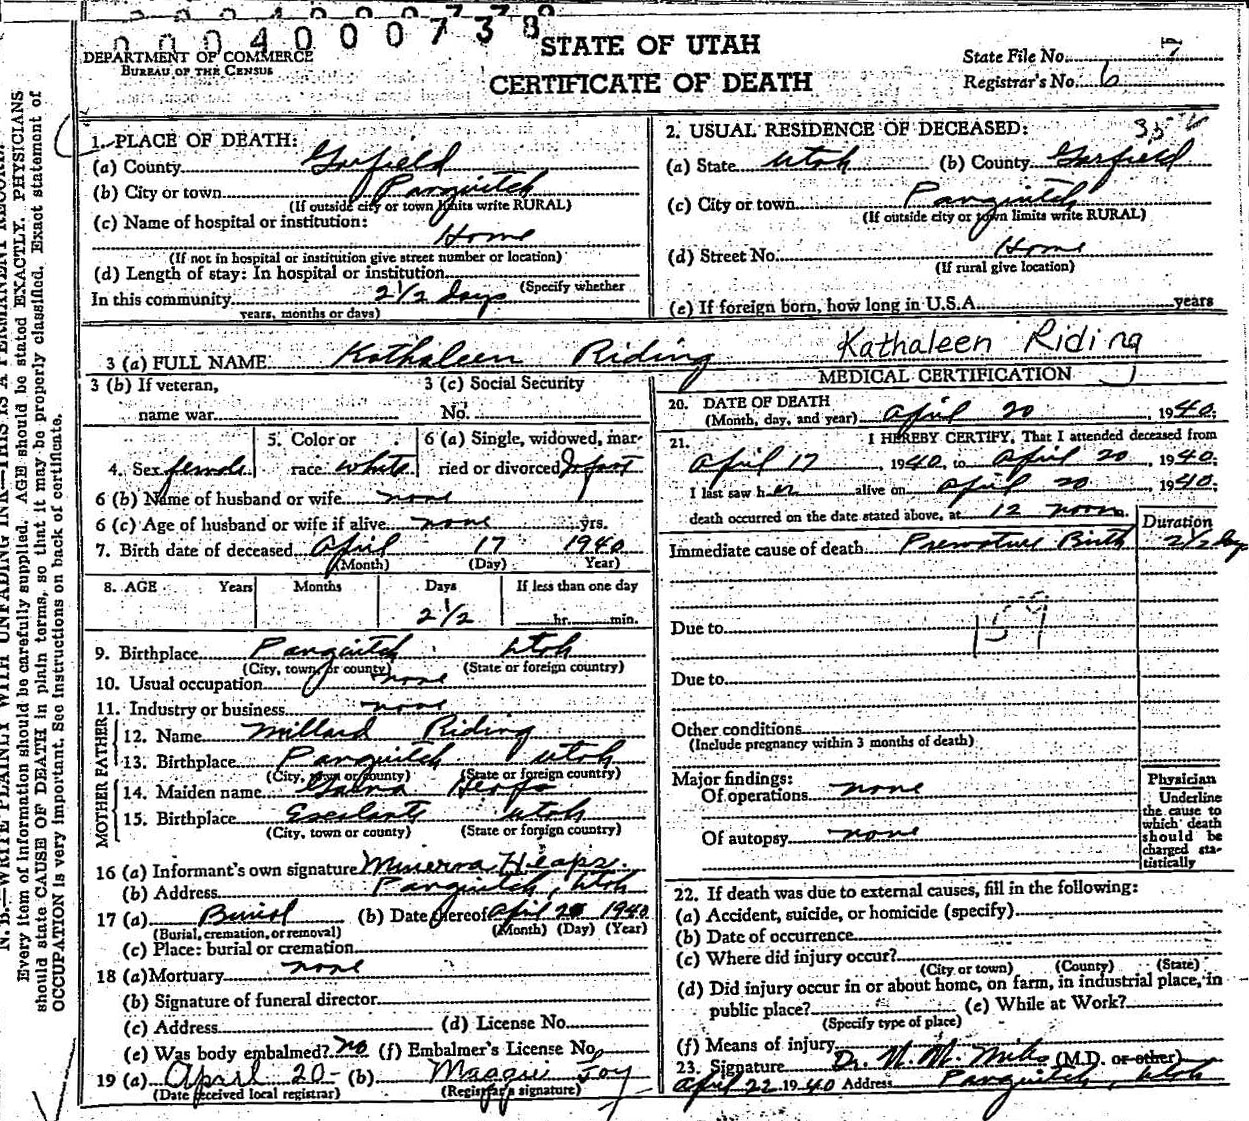 0 0 0 4 0 0 0 7 3 8
STATE OF UTAH
CERTIFICATE OF DEATH
DEPARTMENT OF COMMERCE
BUREAU OF THE CENSUS
State File No. 7
Registrar's No. 6
N. B.—WRITE PLAINLY WITH UNFADING INK—THIS IS A PERMANENT RECORD.
Every item of information should be carefully supplied. AGE should be stated EXACTLY. PHYSICIANS
should state CAUSE OF DEATH in plain terms, so that it may be properly classified. Exact statement of
OCCUPATION is very important. See instructions on back of certificate.
1. PLACE OF DEATH:
(a) County Garfield
(b) City or town Panguitch
(If outside city or town limits write RURAL)
(c) Name of hospital or institution:
Home
(If not in hospital or institution give street number or location)
(d) Length of stay: In hospital or institution
(Specify whether
In this community 2 1/2 days
years, months or days)
2. USUAL RESIDENCE OF DECEASED:
(a) State Utah (b) County Garfield
(c) City or town Panguitch
(If outside city or town limits write RURAL)
(d) Street No. Home
(If rural give location)
(e) If foreign born, how long in U.S.A. years
3 (a) FULL NAME Kathaleen Riding Kathaleen Riding
3 (b) If veteran, 3 (c) Social Security
name war No.
4. Sex female 5. Color or race white 6 (a) Single, widowed, married or divorced Infant
6 (b) Name of husband or wife none
6 (c) Age of husband or wife if alive none yrs.
7. Birth date of deceased April 17 1940
(Month) (Day) Year)
8. AGE Years Months Days If less than one day
2 1/2 hr. min.
9. Birthplace Panguitch Utah
(City, town, or county) (State or foreign country)
10. Usual occupation none
11. Industry or business none
FATHER
12. Name Millard Riding
13. Birthplace Panguitch Utah
(City, town or county) (State or foreign country)
MOTHER
14. Maiden name
15. Birthplace Escalante Utah
(City, town or county) (State or foreign country)
16 (a) Informant's own signature Minerva Heaps.
(b) Address Panguitch, Utah
17 (a) Burial (b) Date thereof April 20 1940
(Burial, cremation, or removal) (Month) (Day) (Year)
(c) Place: burial or cremation
18 (a) Mortuary none
(b) Signature of funeral director
(c) Address (d) License No.
(e) Was body embalmed? no (f) Embalmer's License No.
19 (a) April 20- (b) Maggie Foy
(Date received local registrar) (Registrar's signature)
MEDICAL CERTIFICATION
20. DATE OF DEATH
(Month, day, and year) April 20, 1940.
21. I HEREBY CERTIFY, That I attended deceased from
April 17, 1940, to April 20, 1940.
I last saw her alive on April 20, 1940.
death occurred on the date stated above, at 12 noon.
Duration
Immediate cause of death Premature Birth 2 1/2 days
159
Due to
Due to
Other conditions
(Include pregnancy within 3 months of death)
Major findings:
Of operations none
Of autopsy none
Physician
Underline
the cause to
which death
should be
charged sta-
tistically
22. If death was due to external causes, fill in the following:
(a) Accident, suicide, or homicide (specify)
(b) Date of occurrence
(c) Where did injury occur?
(City or town) (County) (State)
(d) Did injury occur in or about home, on farm, in industrial place, in
public place? (e) While at Work?
(Specify type of place)
(f) Means of injury
23. Signature Dr. (M.D. or other)
April 22 1940 Address Panguitch, Utah